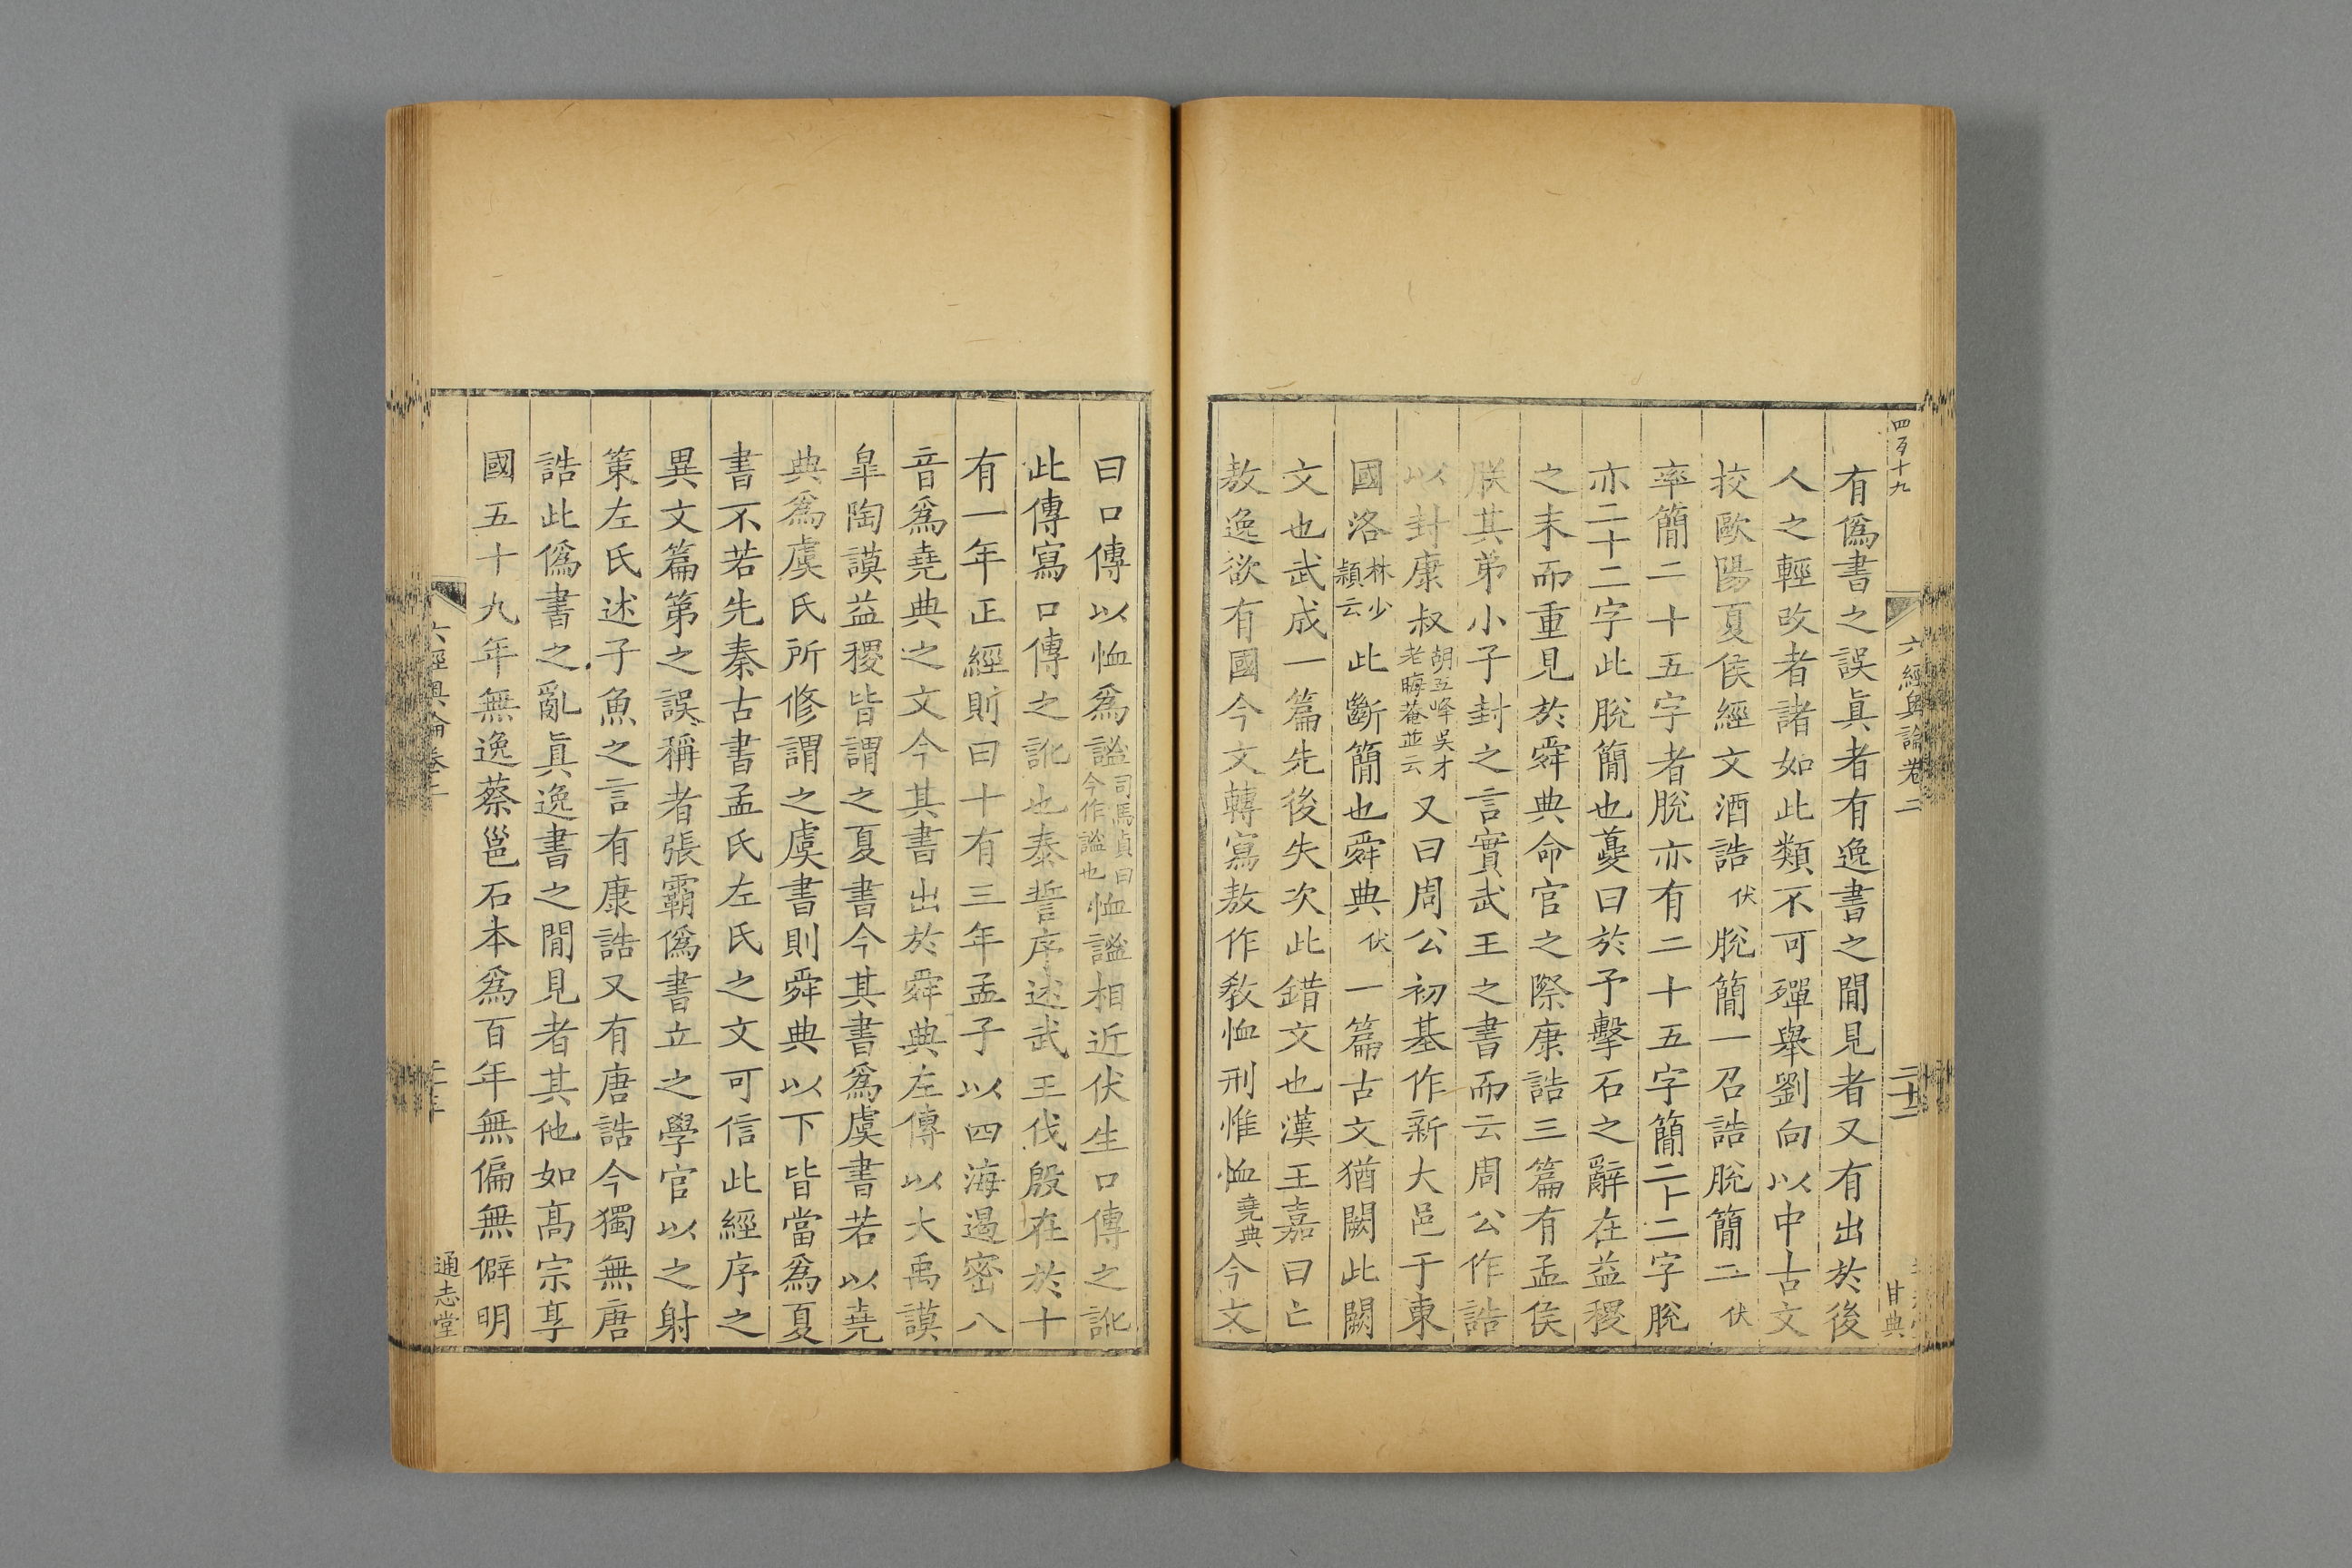 四百十九
六經奧論卷二
二十二
甘典
有僞書之誤眞者有逸書之閒見者又有出於後
人之輕改者諸如此類不可殫舉劉向以中古文
挍歐陽夏侯經文酒誥伏脫簡一召誥脫簡二伏
率簡二十五字者脫亦有二十五字簡二十二字脫
亦二十二字此脫簡也夔曰於予擊石之辭在益稷
之末而重見於舜典命官之際康誥三篇有孟侯
朕其弟小子封之言實武王之書而云周公作誥
以封康叔胡五峰吳才老晦菴並云又曰周公初基作新大邑于東
國洛林少穎云此斷簡也舜典伏一篇古文猶闕此闕
文也武成一篇先後失次此錯文也漢王嘉曰亡
敖逸欲有國今文轉寫敖作敎恤刑惟恤堯典今文
曰口傳以恤爲謐司馬貞曰今作謐也恤謐相近伏生口傳之訛
此傳寫口傳之訛也泰誓序述武王伐殷在於十
有一年正經則曰十有三年孟子以四海遏密八
音爲堯典之文今其書出於舜典左傳以大禹謨
皐陶謨益稷皆謂之夏書今其書爲虞書若以堯
典爲虞氏所修謂之虞書則舜典以下皆當爲夏
書不若先秦古書孟氏左氏之文可信此經序之
異文篇第之誤稱者張霸僞書立之學官以之射
策左氏述子魚之言有康誥又有唐誥今獨無唐
誥此僞書之亂眞逸書之閒見者其他如高宗享
國五十九年無逸蔡邕石本爲百年無偏無僻明
六經奧論卷二
通志堂